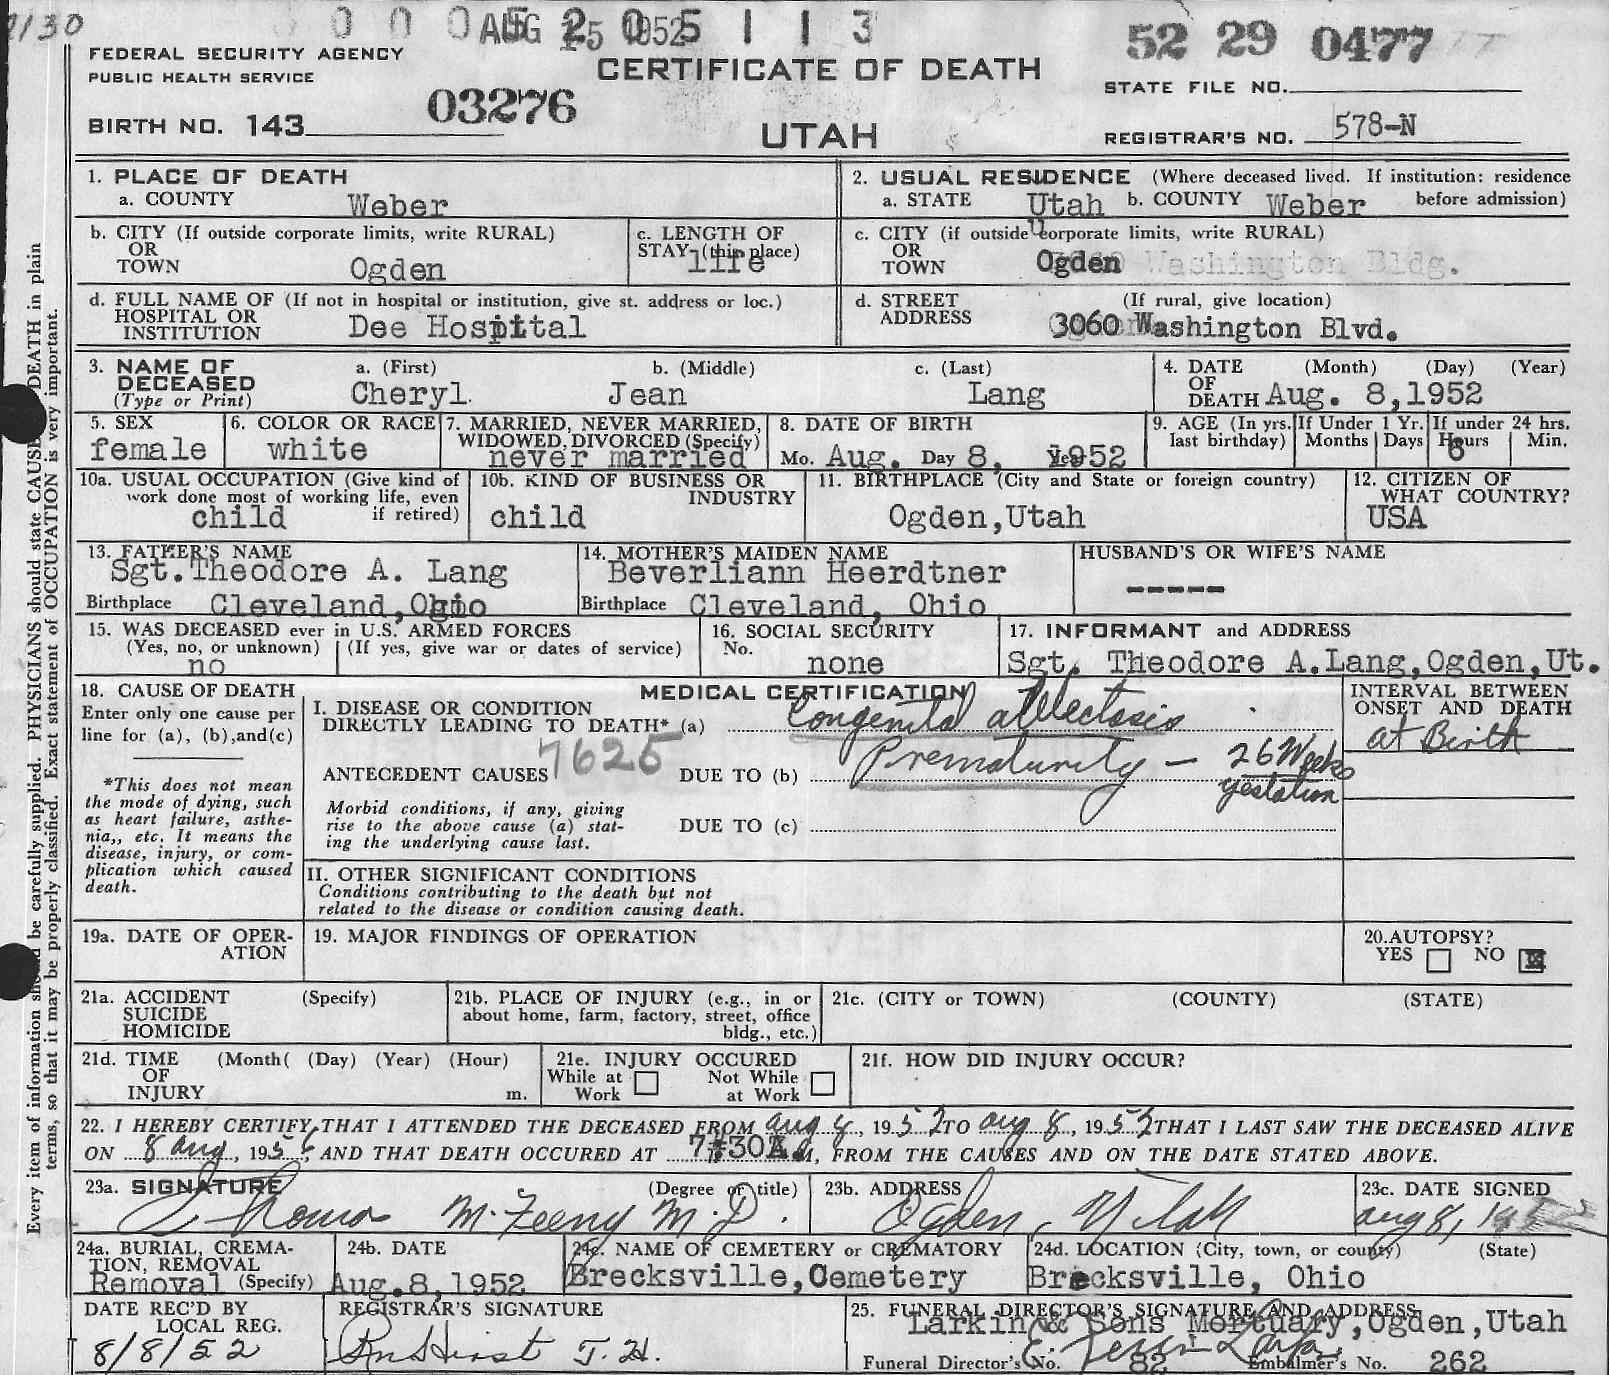 2/30
AUG 15 1952
52 29 0477
FEDERAL SECURITY AGENCY
PUBLIC HEALTH SERVICE
CERTIFICATE OF DEATH
STATE FILE NO.
BIRTH NO. 143
03276
UTAH
REGISTRAR'S NO. 578-N
1. PLACE OF DEATH
a. COUNTY Weber
2. USUAL RESIDENCE (Where deceased lived. If institution: residence
a. STATE Utah b. COUNTY Weber before admission)
b. CITY (If outside corporate limits, write RURAL)
OR
TOWN Ogden
c. LENGTH OF
STAY (this place)
life
c. CITY (if outside corporate limits, write RURAL)
OR
TOWN Ogden Washington Bldg.
d. FULL NAME OF (If not in hospital or institution, give st. address or loc.)
HOSPITAL OR
INSTITUTION Dee Hospital
d. STREET (If rural, give location)
ADDRESS 3060 Washington Blvd.
3. NAME OF
DECEASED
(Type or Print)
a. (First) b. (Middle) c. (Last)
Cheryl Jean Lang
4. DATE (Month) (Day) (Year)
OF
DEATH Aug. 8,1952
5. SEX
female
6. COLOR OR RACE
white
7. MARRIED, NEVER MARRIED,
WIDOWED, DIVORCED (Specify)
never married
8. DATE OF BIRTH
Mo. Aug. Day 8, Year 1952
9. AGE (In yrs.
last birthday)
If Under 1 Yr.
Months Days
If under 24 hrs.
Hours Min.
6
10a. USUAL OCCUPATION (Give kind of
work done most of working life, even
if retired)
child
10b. KIND OF BUSINESS OR
INDUSTRY
child
11. BIRTHPLACE (City and State or foreign country)
Ogden,Utah
12. CITIZEN OF
WHAT COUNTRY?
USA
13. FATHER'S NAME
Sgt.Theodore A. Lang
Birthplace Cleveland,Ohio
14. MOTHER'S MAIDEN NAME
Beverliann Heerdtner
Birthplace Cleveland, Ohio
HUSBAND'S OR WIFE'S NAME
-----
15. WAS DECEASED ever in U.S. ARMED FORCES
(Yes, no, or unknown) (If yes, give war or dates of service)
no
16. SOCIAL SECURITY
No.
none
17. INFORMANT and ADDRESS
Sgt. Theodore A.Lang,Ogden,Ut.
18. CAUSE OF DEATH
Enter only one cause per
line for (a), (b),and(c)
*This does not mean
the mode of dying, such
as heart failure, asthe-
nia,, etc. It means the
disease, injury, or com-
plication which caused
death.
MEDICAL CERTIFICATION
I. DISEASE OR CONDITION
DIRECTLY LEADING TO DEATH* (a) Congenital atelectasis
7625
ANTECEDENT CAUSES DUE TO (b) Prematurity - 26 Weeks
gestation
Morbid conditions, if any, giving
rise to the above cause (a) stat-
ing the underlying cause last.
DUE TO (c)
INTERVAL BETWEEN
ONSET AND DEATH
at Birth
II. OTHER SIGNIFICANT CONDITIONS
Conditions contributing to the death but not
related to the disease or condition causing death.
19a. DATE OF OPER-
ATION
19. MAJOR FINDINGS OF OPERATION
20.AUTOPSY?
YES NO
21a. ACCIDENT (Specify)
SUICIDE
HOMICIDE
21b. PLACE OF INJURY (e.g., in or
about home, farm, factory, street, office
bldg., etc.)
21c. (CITY or TOWN) (COUNTY) (STATE)
21d. TIME (Month( (Day) (Year) (Hour)
OF
INJURY m.
21e. INJURY OCCURED
While at Not While
Work at Work
21f. HOW DID INJURY OCCUR?
22. I HEREBY CERTIFY THAT I ATTENDED THE DECEASED FROM aug 8, 1952 TO aug 8, 1952 THAT I LAST SAW THE DECEASED ALIVE
ON 8 aug, 195, AND THAT DEATH OCCURED AT 7:30A M, FROM THE CAUSES AND ON THE DATE STATED ABOVE.
23a. SIGNATURE (Degree or title)
Thomas M. Feeny M.D.
23b. ADDRESS
Ogden, Utah
23c. DATE SIGNED
aug 8, 1952
24a. BURIAL, CREMA-
TION, REMOVAL
Removal (Specify)
24b. DATE
Aug.8,1952
24c. NAME OF CEMETERY or CREMATORY
Brecksville,Cemetery
24d. LOCATION (City, town, or county) (State)
Brecksville, Ohio
DATE REC'D BY
LOCAL REG.
8/8/52
REGISTRAR'S SIGNATURE
25. FUNERAL DIRECTOR'S SIGNATURE AND ADDRESS
Larkin & Sons Mortuary,Ogden,Utah
Funeral Director's No. 82 Embalmer's No. 262
Every item of information should be carefully supplied. PHYSICIANS should state CAUSE DEATH in plain
terms, so that it may be properly classified. Exact statement of OCCUPATION is very important.